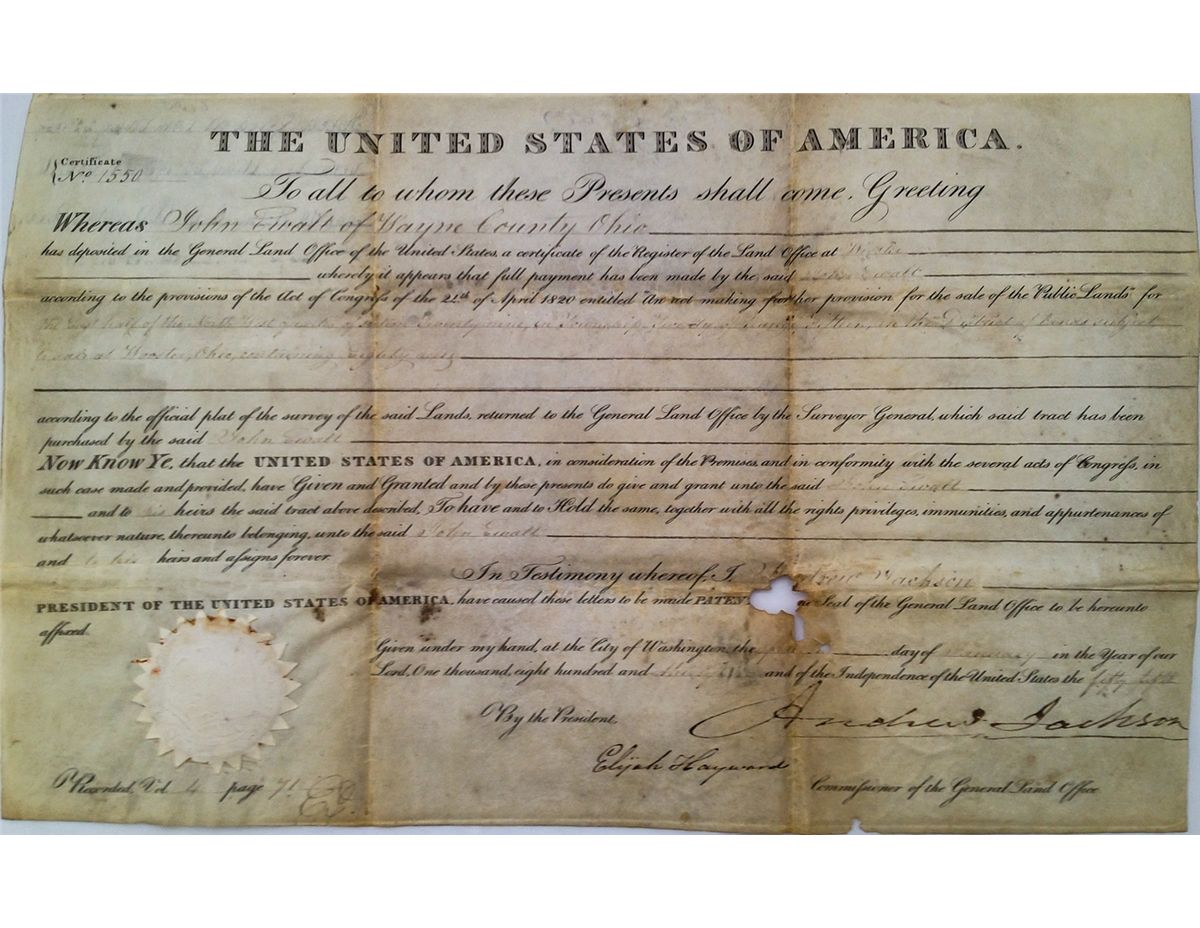 THE UNITED STATES OF AMERICA.
Certificate
No. 1550
To all to whom these Presents shall come, Greeting
Whereas John Ewalt of Wayne County Ohio
has deposited in the General Land Office of the United States, a certificate of the Register of the Land Office at
whereby it appears that full payment has been made by the said John Ewalt
according to the provisions of the Act of Congress of the 24th of April 1820 entitled "An act making further provision for the sale of the Public Lands" for
the half of the North quarter of in Township in the District of Lands subject
to sale at Wooster, Ohio, containing Eighty acres
according to the official plat of the survey of the said Lands, returned to the General Land Office by the Surveyor General, which said tract has been
purchased by the said John Ewalt
Now Know Ye, that the UNITED STATES OF AMERICA, in consideration of the Premises, and in conformity with the several acts of Congress, in
such case made and provided, have Given and Granted and by these presents do give and grant unto the said John Ewalt
and to his heirs the said tract above described, To have and to Hold the same, together with all the rights privileges, immunities, and appurtenances of
whatsoever nature, thereunto belonging, unto the said John Ewalt
and to his heirs and assigns forever.
In Testimony whereof, I, Andrew Jackson
PRESIDENT OF THE UNITED STATES OF AMERICA, have caused these letters to be made PATENT Seal of the General Land Office to be hereunto
affixed.
Given under my hand, at the City of Washington the day of in the Year of our
Lord, One thousand, eight hundred and and of the Independence of the United States the fifty fifth
By the President, Andrew Jackson
Elijah Hayward
Commissioner of the General Land Office
Recorded, Vol 4 page 71